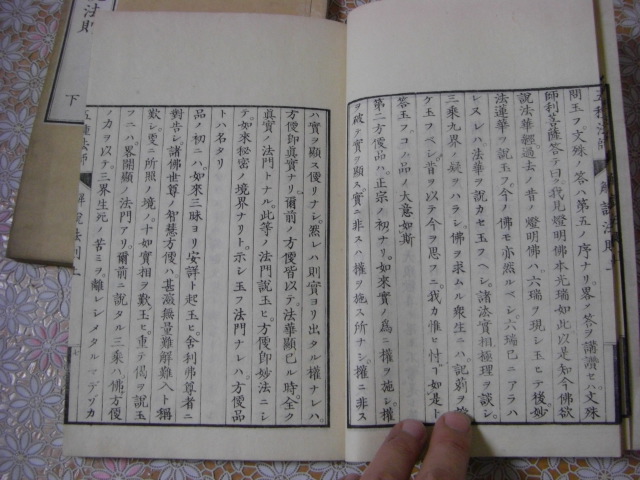 法則
下
五種法師 解説法則一
問玉フ文殊ノ答ハ第五ノ序ナリ。畧ノ答ヲ講讃セバ文殊
師利菩薩答テ曰ク我見燈明佛本光瑞如此以是知今佛欲
説法華經過去ノ昔ノ燈明佛ハ六瑞ヲ現シ玉ヒテ後妙
法蓮華ヲ説玉フ今ノ佛モ亦然ルベシ六瑞已ニアラハ
レヌレハ法華ヲ説カセ玉フベシ。諸法實相極理ヲ談シ。
三乘九界ノ疑ヲハラシ。佛ヲ求ムル衆生ニハ記莂ヲ
ケ玉フベシ。昔ヲ以テ今ヲ思フニ。我カ惟ヒ忖ルニ如是ト
答玉フ。コノ品ノ大意如斯
第二方便品ハ。正宗ノ初ナリ。如來實ノ爲ニ權ヲ施シ。權
ヲ破テ實ヲ顯ス。實ニ非スハ權ヲ施ス所ナシ。權ニ非ス
ハ實ヲ顯ス便リナシ。然レハ則實ヨリ出タル權ナレハ。
方便即眞實ナリ。爾前ノ方便皆以テ。法華顯已ル時。全ク
眞實ノ法門トナル。此等ノ法門説玉ヒ。方便即妙法ニシ
テ。如來秘密ノ境界ナリト。示シ玉フ法門ナレハ。方便品
トハ名タリ
品ノ初ニハ。如來三昧ヨリ安詳ト起玉ヒ。舍利佛尊者ニ
對告シ諸佛世尊ノ智慧方便ハ甚深無量難解難入ト稱
歎シ。所照ノ境。十如實相ヲ歎玉ヒ。重テ偈ヲ説玉
フニハ畧開顯ノ法門アリ。爾前ニ説タル三乘ハ。佛方便
ノ力ヲ以テ三界生死ノ苦ミヲ。離レシメタルマデゾカ
五種法師 解説法則一